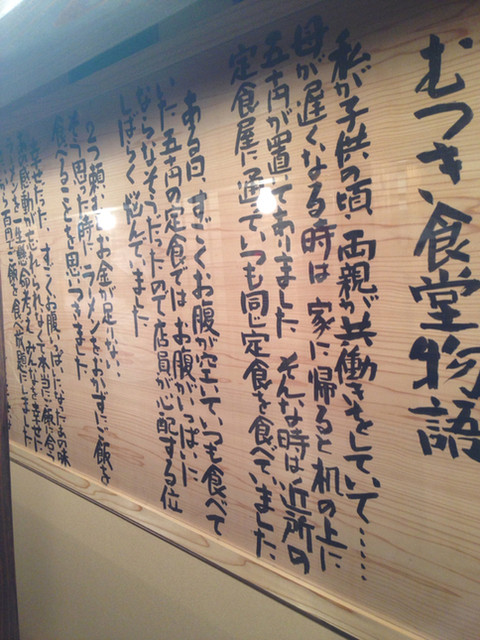 むつき食堂物語
私が子供の頃、両親が共働きをしていて……
母が遅くなる時は家に帰ると机の上に
五百円が置いてありました そんな時は近所の
定食屋に通っていつも同じ定食を食べていました。
ある日、すごくお腹が空いていつも食べて
いた五百円の定食ではお腹がいっぱいに
ならなそうだったので店員が心配する位
しばらく悩んでいました
2つ頼むにはお金が足りない…
そう思った時にラーメンをおかずにご飯を
食べることを思いつきました
幸せだった すごくお腹いっぱいになった
あの感動が忘れられなくて本当に